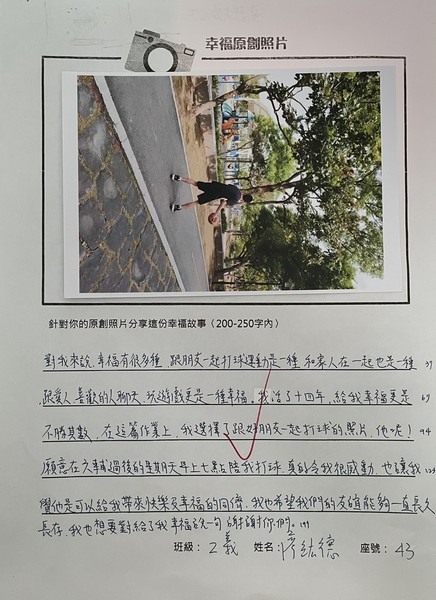 幸福原創照片
針對你的原創照片分享這份幸福故事（200-250字內）
對我來說,幸福有很多種,跟朋友一起打球運動是一種,和家人在一起也是一種 37
,跟愛人、喜歡的人聊天、玩遊戲更是一種幸福。我活了十四年,給我幸福更是 69
不勝其數,在這篇作業上,我選擇了跟好朋友一起打球的照片,他呢! 94
願意在六軍試過後的星期天早上七點陪我打球,真的令我很感動,也讓我 123
覺他是可以給我帶來快樂及幸福的同儕,我也希望我們的友誼能夠一直長久
長存,我也想要對給了我幸福說一句謝謝你們。
班級：2義 姓名：紘德 座號：43